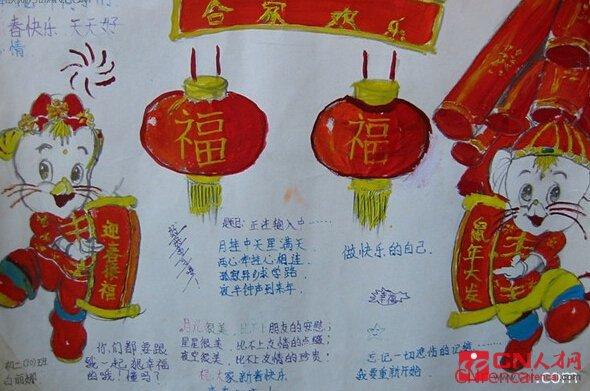 合家欢乐
春快乐 天天好
情
福
福
迎春接福
鼠年大发
题目: 正在输入中……
月挂中天星满天
两心牵挂心相连
夜半钟声到来年
做快乐的自己.
你们都要跟
我一起 把幸福
的哦! 懂吗?
初二(10)班
月儿很美 比不上 朋友的安慰;
星星很美 比不上 友情的点缀;
夜空很美 比不上 友情的珍贵;
祝大家新春快乐
忘记一切悲伤的记忆
我要重新开始
CN人才网